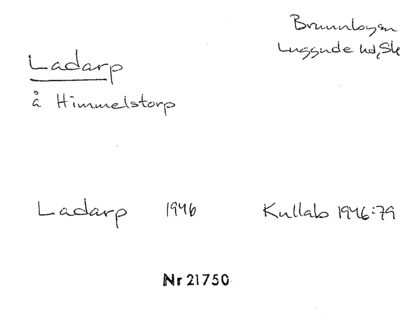 Brunnbyn
Luggude hd, Sk
Ladarp
å Himmelstorp
Ladarp 1946 Kullab 1946:79
Nr 21750